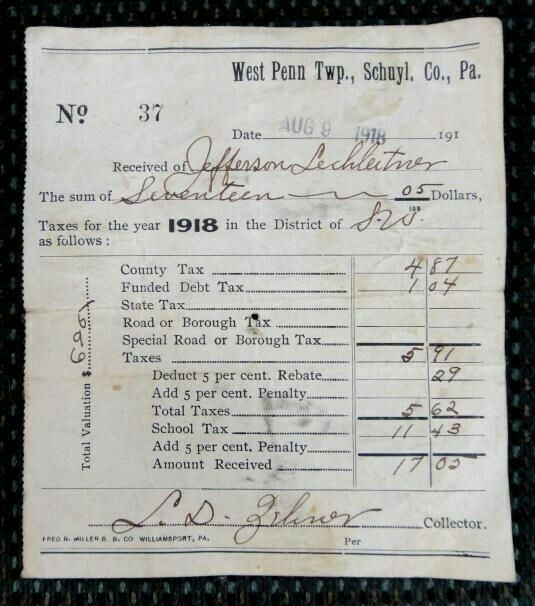 West Penn Twp., Schuyl. Co., Pa.
No 37
Date AUG 9 1918 191
Received of Jefferson Lechleitner
The sum of Seventeen 05/100 Dollars,
Taxes for the year 1918 in the District of S.W.
as follows:
Total Valuation $ 695
County Tax 4 87
Funded Debt Tax 1 04
State Tax
Road or Borough Tax
Special Road or Borough Tax
Taxes 5 91
Deduct 5 per cent. Rebate 29
Add 5 per cent. Penalty
Total Taxes 5 62
School Tax 11 43
Add 5 per cent. Penalty
Amount Received 17 05
L. D. Zehner Collector.
FRED R. MILLER B. B. CO WILLIAMSPORT, PA.
Per